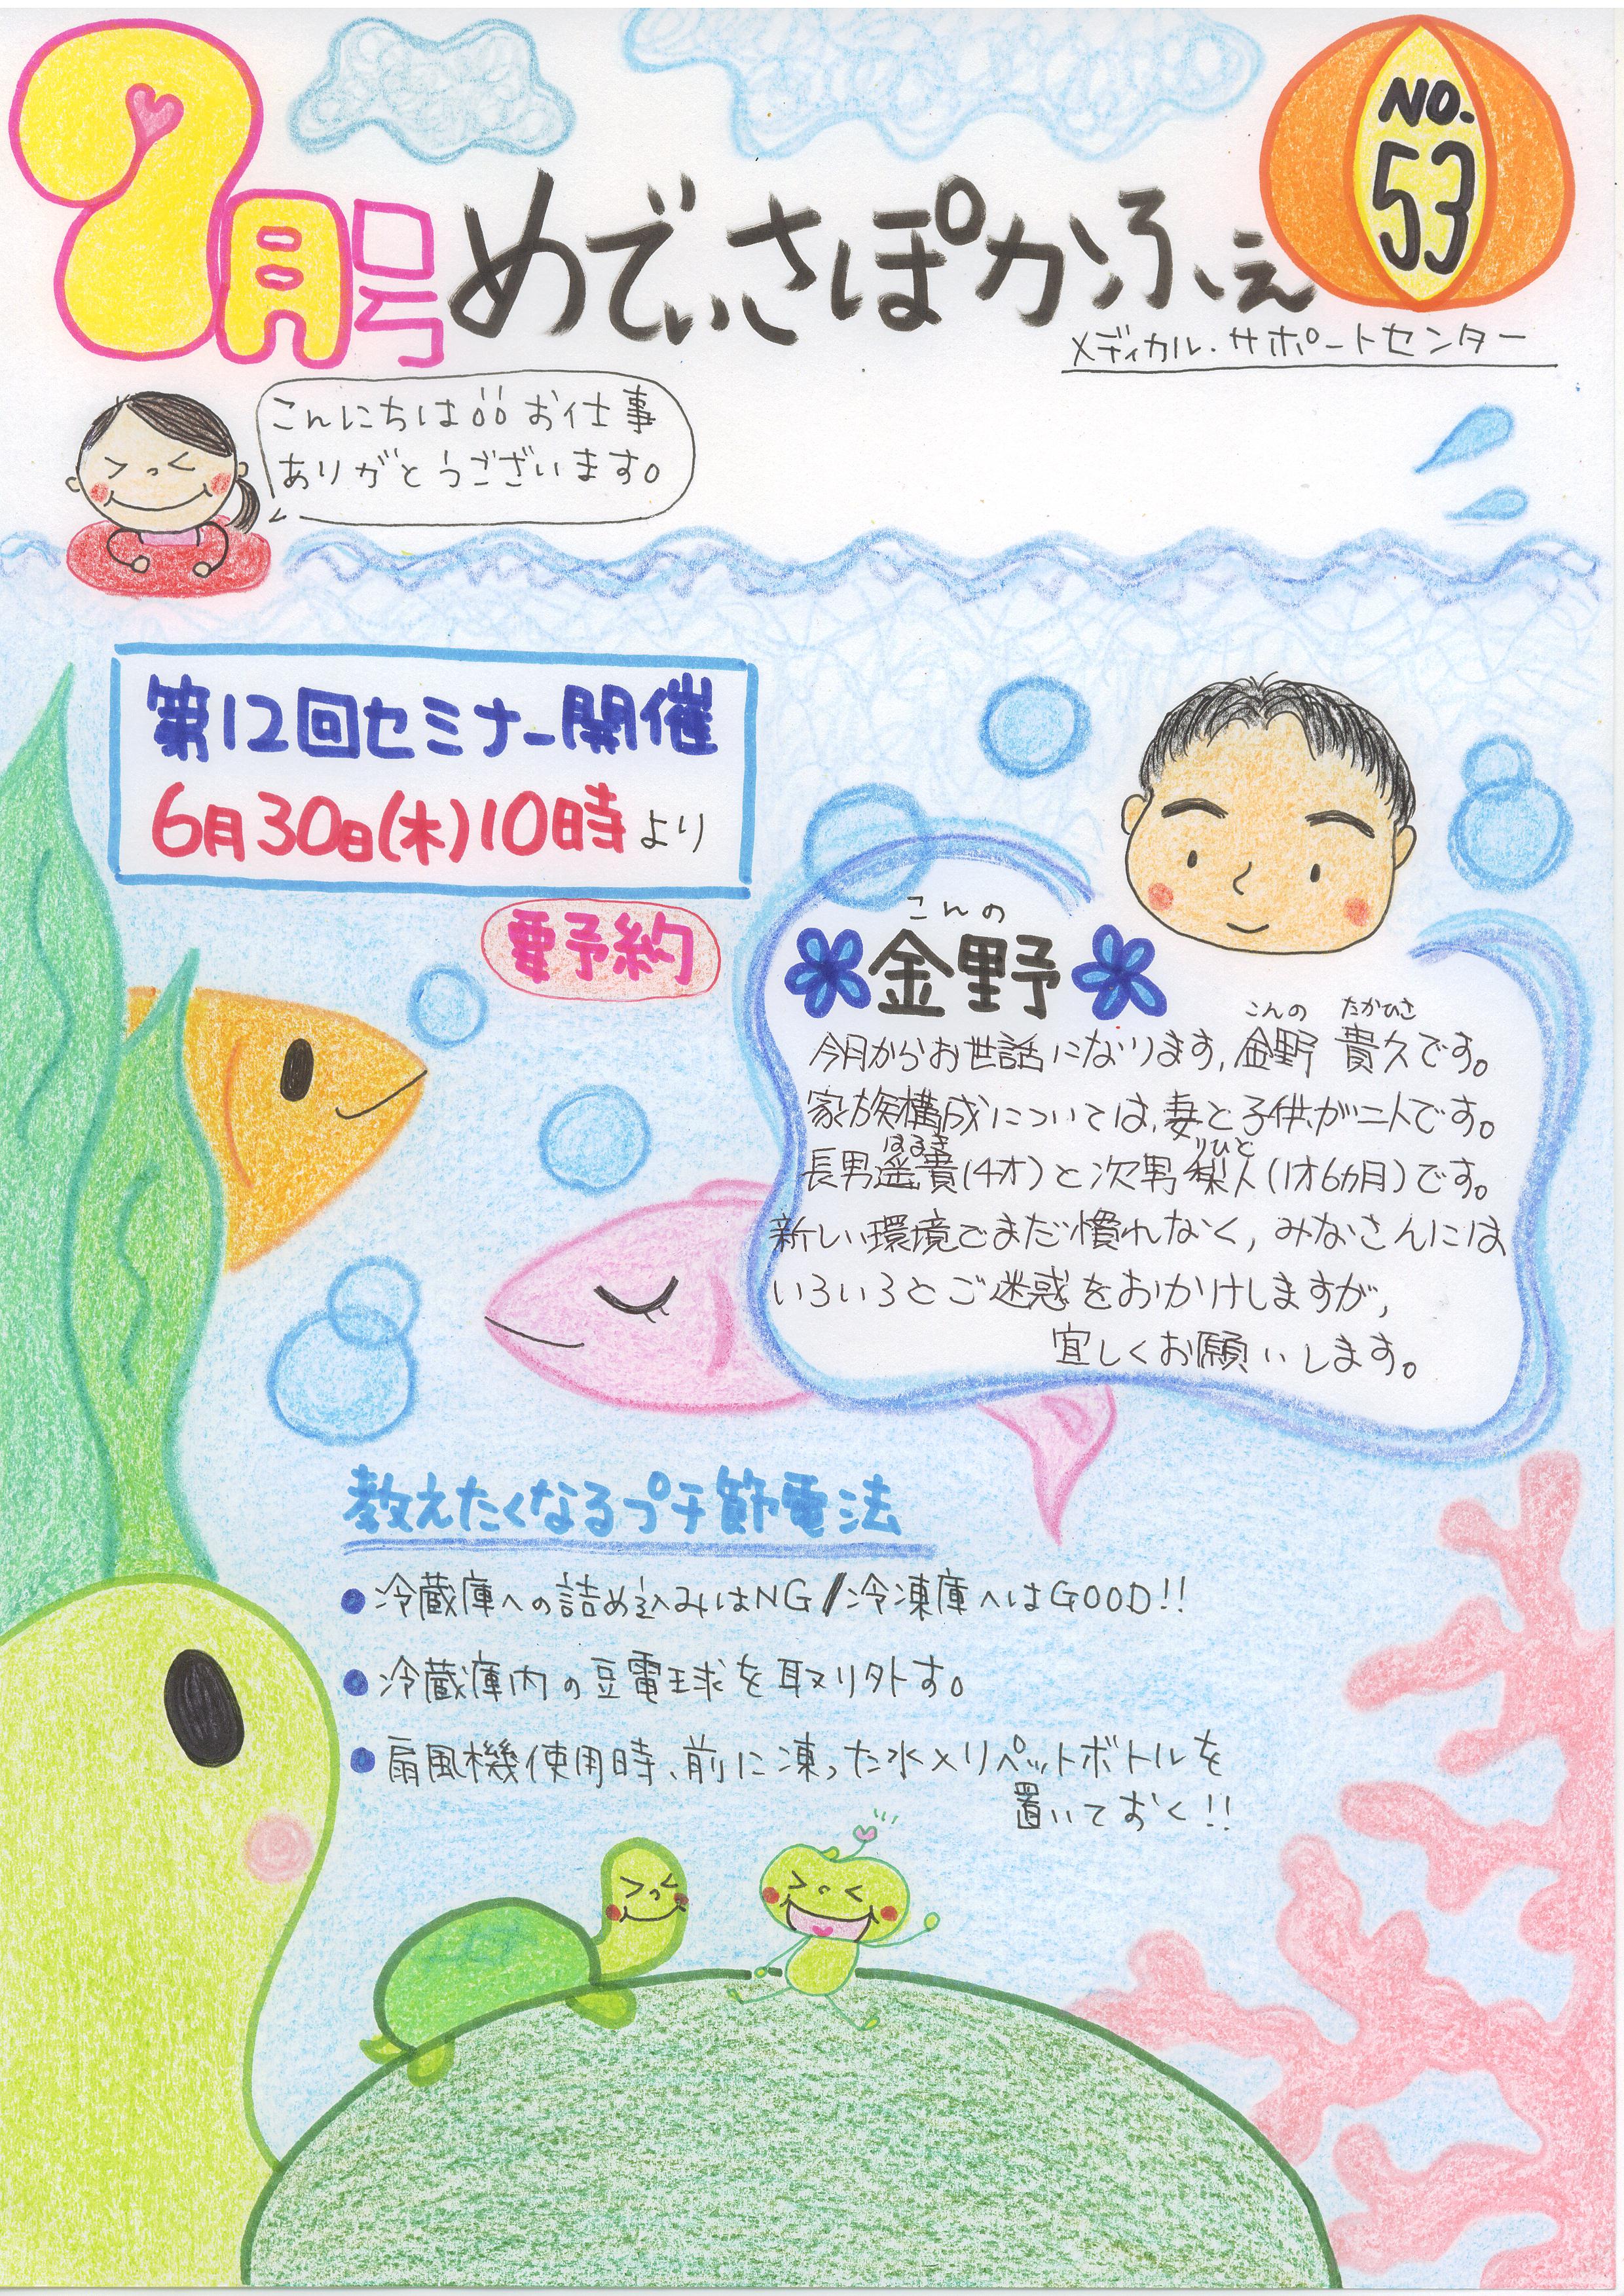 7月号
めでぃさぽかふぇ
NO.
53
メディカル・サポートセンター
こんにちは♪♪お仕事
ありがとうございます。
第12回セミナー開催
6月30日(木)10時より
要予約
こんの
金野
こんの たかひさ
今月からお世話になります、金野 貴久です。
家族構成については、妻と子供が二人です。
はるき りひと
長男遥貴(4才)と次男梨人(1才6ヵ月)です。
新しい環境でまだ慣れなく、みなさんには
いろいろとご迷惑をおかけしますが、
宜しくお願いします。
教えたくなるプチ節電法
●冷蔵庫への詰め込みはNG/冷凍庫へはGOOD!!
●冷蔵庫内の豆電球を取り外す。
●扇風機使用時、前に凍った水入りペットボトルを
置いておく!!